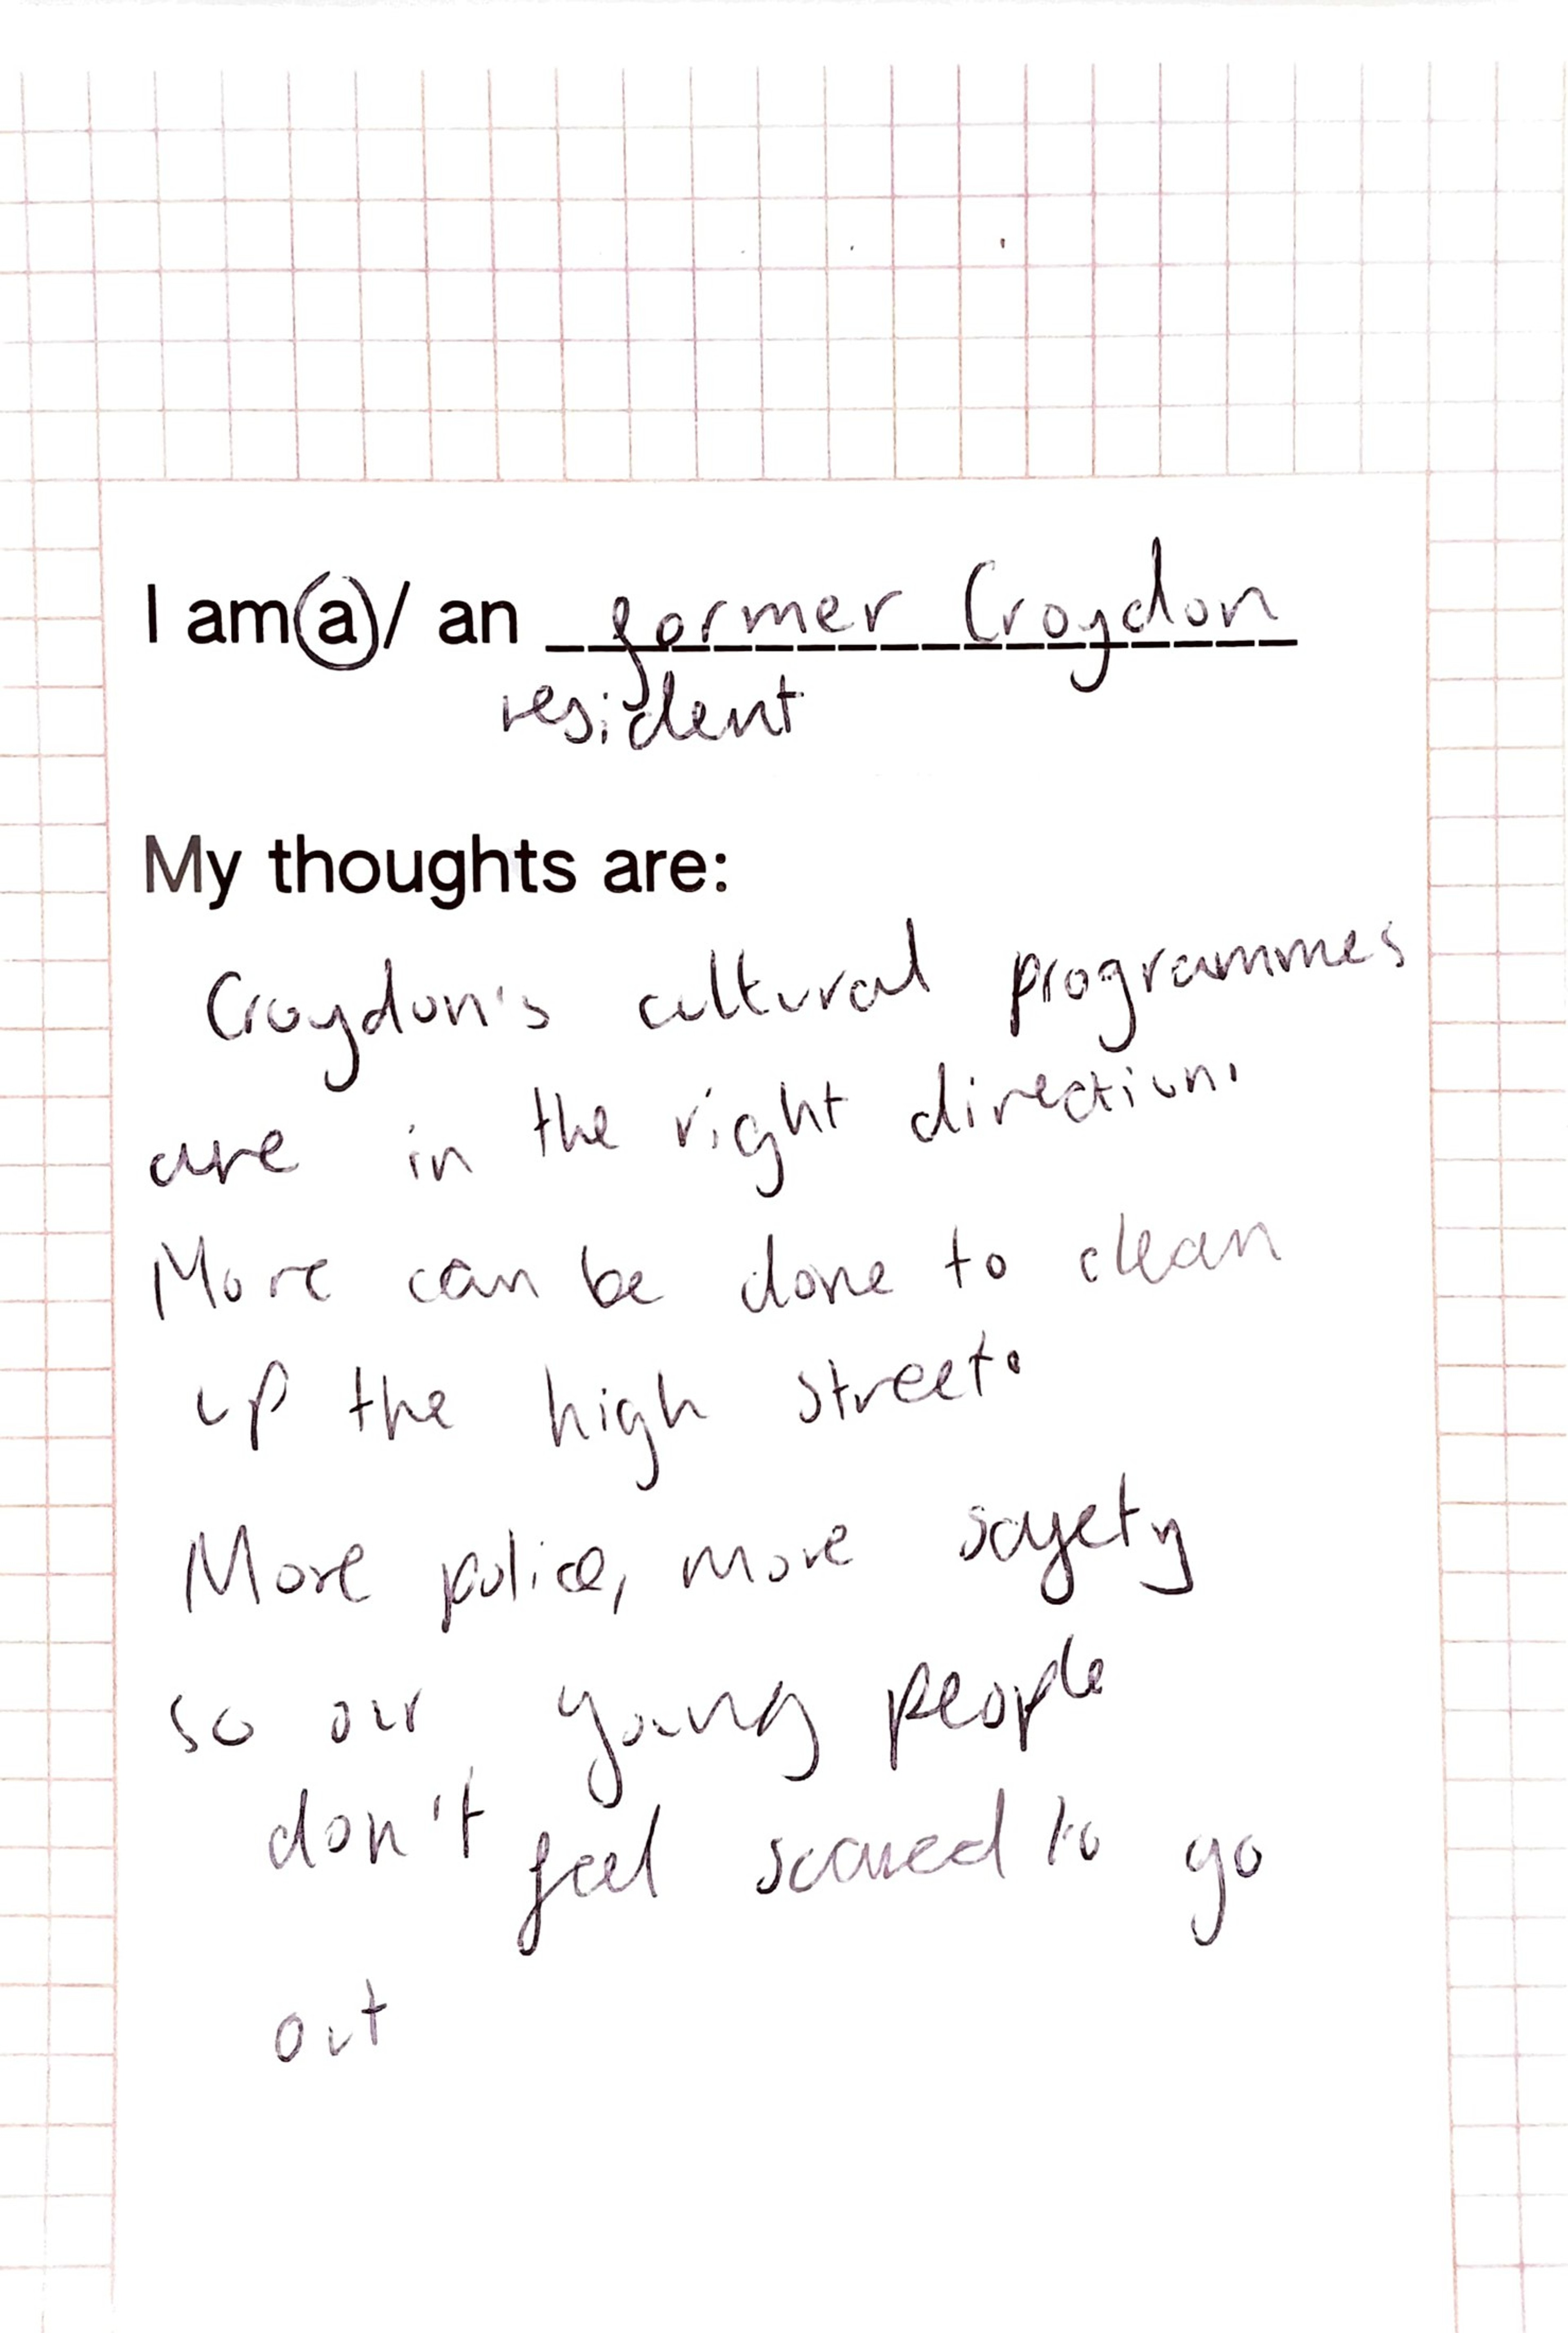 I am (a) / an former Croydon
resident
My thoughts are:
Croydon's cultural programmes
are in the right direction.
More can be done to clean
up the high street.
More police, more safety
so our young people
don't feel scared to go
out